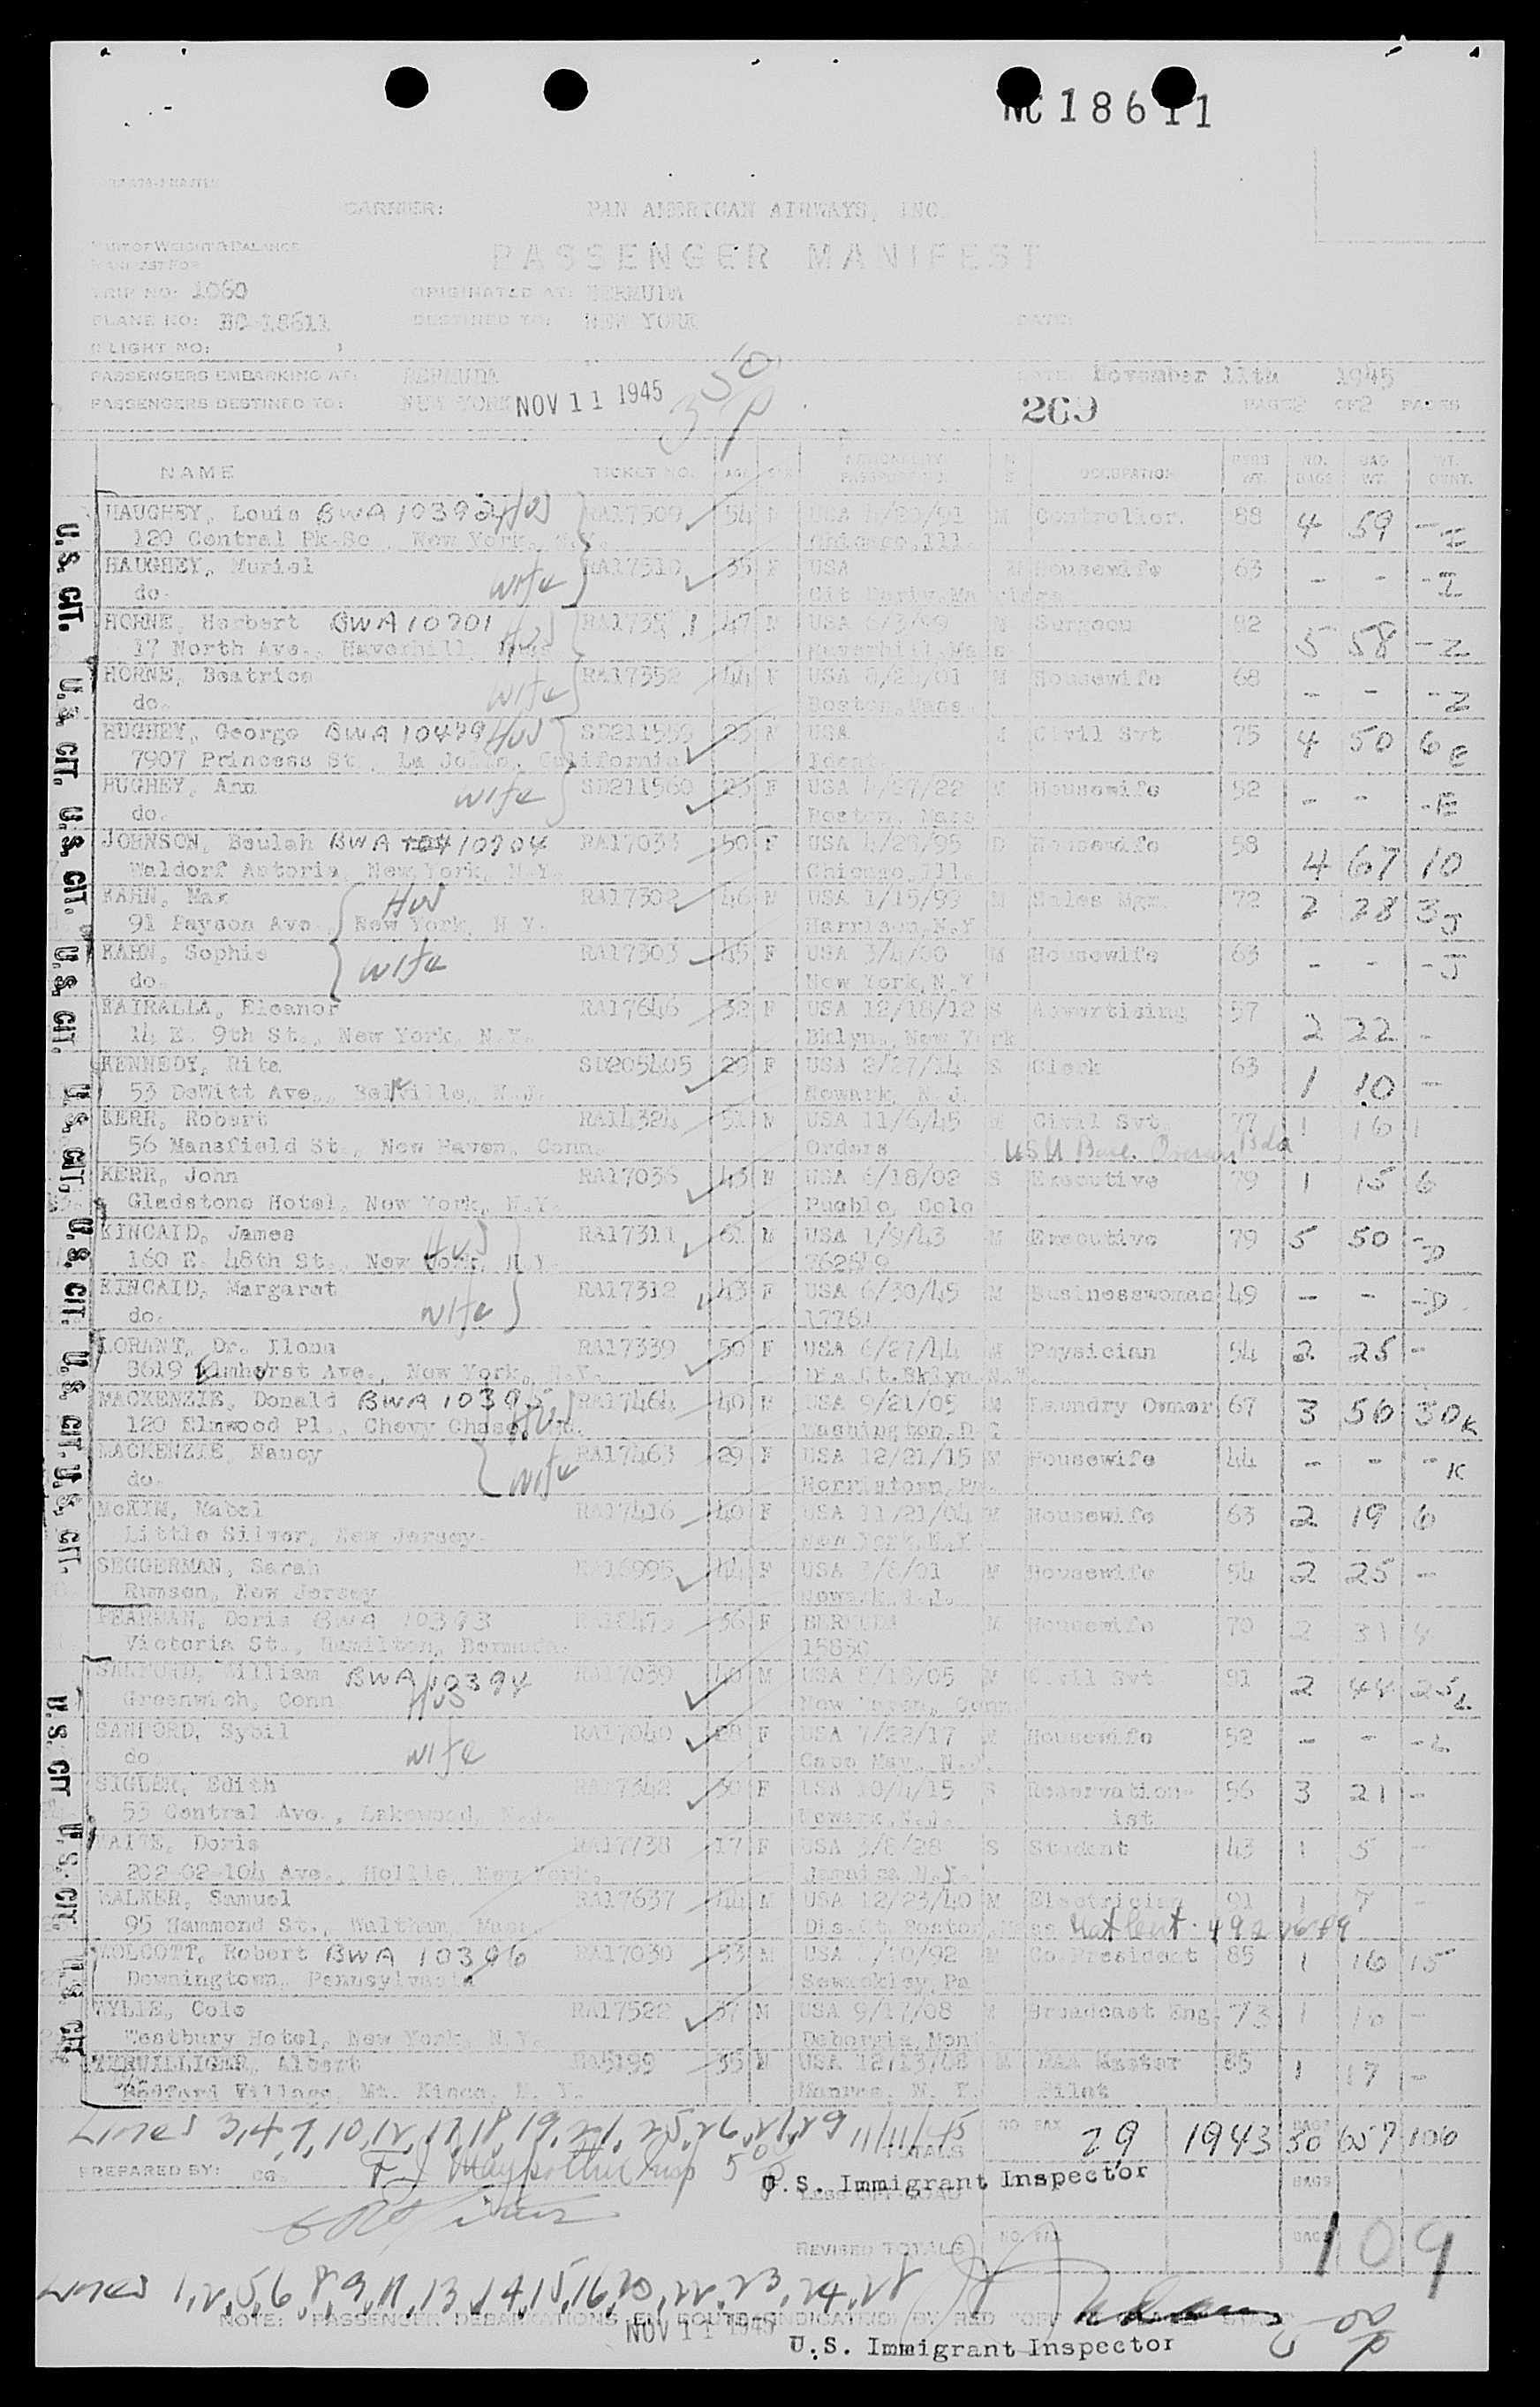 NC18611
CARRIER: PAN AMERICAN AIRWAYS, INC.
PART OF WEIGHT & BALANCE
MANIFEST FOR
PASSENGER MANIFEST
TRIP NO: 1060 ORIGINATED AT: BERMUDA
PLANE NO: NC-18611 DESTINED TO: NEW YORK DATE:
FLIGHT NO:
PASSENGERS EMBARKING AT: BERMUDA DATE: November 11th 1945
PASSENGERS DESTINED TO: NEW YORK NOV 11 1945 269 PAGE 2 OF 2 PAGES
NAME TICKET NO. AGE SEX OCCUPATION PASS WT. NO. BAGS BAG WT.
HAUGHEY, Louis BWA 10392 Hus RA17309 54 M USA M Controller 88 4 59 - I
120 Central Pk So., New York, Chicago, Ill.
HAUGHEY, Muriel wife RA17310 35 F USA M Housewife 63 - - - I
do.
HORNE, Herbert BWA 10701 Hus 47 M USA M Surgeon 82 5 58 - Z
17 North Ave., Haverhill, Mass Haverhill, Mass
HORNE, Beatrice wife RA17352 44 F USA M Housewife 68 - - - Z
do. Boston, Mass
HUGHEY, George BWA 10499 Hus SD211559 23 M USA M Civil Svt 75 4 50 6 E
7907 Princess St., La Jolla, California
HUGHEY, Ann wife SD211560 23 F USA M Housewife 52 - - - E
do. Boston, Mass
JOHNSON, Beulah BWA 10704 RA17033 50 F USA 4/29/95 D Housewife 58 4 67 10
Waldorf Astoria, New York, N.Y. Chicago, Ill.
KAHN, Max Hus RA17302 46 M USA 1/15/99 M Sales Mgr. 72 2 28 3 J
91 Payson Ave New York, N.Y. Harrison, N.Y
KAHN, Sophie wife RA17303 45 F USA 3/4/00 M Housewife 63 - - - J
do. New York, N.Y
KAIRALLA, Eleanor RA17646 32 F USA 12/18/12 S Advertising 57 2 22 -
14 E. 9th St., New York, N.Y. Bklyn, New York
KENNEDY, Rita SD205405 29 F USA 2/27/14 S Clerk 63 1 10 -
53 DeWitt Ave., Belleville, N.J. Newark, N.J.
KERR, Robert RA14324 51 M USA 11/6/45 M Civil Svt 77 1 16 1
56 Mansfield St., New Haven, Conn. Orders
KERR, John RA17036 43 M USA 6/18/02 S Executive 79 1 15 6
Gladstone Hotel, New York, N.Y. Pueblo, Colo
KINCAID, James Hus RA17311 61 M USA 1/9/43 M Executive 79 5 50 - D
160 E. 48th St., New York, N.Y.
KINCAID, Margaret wife RA17312 43 F USA 6/30/45 M Businesswoman 49 - - - D
do.
LORANT, Dr. Ilona RA17339 50 F USA 6/27/44 M Physician 54 2 25 -
8619 Elmhurst Ave., New York, N.Y. Dis. Ct. Bklyn N.Y.
MACKENZIE, Donald BWA 10395 Hus RA17464 40 M USA 9/21/05 M Laundry Owner 67 3 50 30 K
120 Elmwood Pl., Chevy Chase, Md. Washington, D C
MACKENZIE, Nancy wife RA17463 29 F USA 12/21/15 M Housewife 44 - - - K
do. Norristown, Pa.
McKIM, Mabel RA17416 40 F USA 11/21/04 M Housewife 63 2 19 6
Little Silver, New Jersey New York, N.Y
SEGGERMAN, Sarah RA16995 44 F USA M Housewife 54 2 25 -
Rumson, New Jersey Newark, N.J.
PEARMAN, Doris BWA 10393 36 F BERMUDA M Housewife 70 2 31 4
Victoria St., Hamilton, Bermuda 15850
SANFORD, William BWA 10394 Hus RA17039 40 M USA M Civil Svt 91 2 44 25 L
Greenwich, Conn New Haven, Conn
SANFORD, Sybil wife RA17040 28 F USA 7/22/17 M Housewife 52 - - - L
do Cape May, N.J.
SIGLER, Edith 30 F USA 10/4/15 S Reservation- 56 3 21 -
53 Central Ave., Lakewood, N.J. Newark, N.J. ist
WAITE, Doris RA17738 17 F USA S Student 43 1 5 -
202-02-104 Ave., Hollis, New York. Jamaica N.Y.
WALKER, Samuel RA17637 44 M USA 12/23/40 M Electrician 91 1 7 -
95 Hammond St., Waltham, Mass. Dis. Ct. Boston, Mass
WOLCOTT, Robert BWA 10396 RA17030 53 M USA M Co. President 85 1 16 15
Downingtown, Pennsylvania Sewickley, Pa
WYLIE, Cole RA17522 37 M USA 9/17/08 M Broadcast Eng. 73 1 16 -
Westbury Hotel, New York, N.Y. Deborgia, Mon
TERWILLIGER, Albert 36 M USA M PAA Master 85 1 17 -
Bedford Village, Mt. Kisco, N.Y. Pilot
U.S. CIT. U.S. CIT. U.S. CIT. U.S. CIT. U.S. CIT. U.S. CIT. U.S. CIT. U.S. CIT. U.S. CIT U.S. CIT. U.S. CIT
Lines 3,4,7,10,12,17,18,19,21,25,26,27,29 11/11/45
TOTALS NO. PAX 29 1943 BAGS 50 657 106
PREPARED BY: CG.
U.S. Immigrant Inspector
LESS OFF LOAD BAGS
REVISED TOTALS NO. PAX BAGS 109
Lines 1,2,5,6,8,9,11,13,14,15,16,20,22,23,24,28
NOTE: PASSENGER DEPARTATIONS EN ROUTE INDICATED BY RED
NOV 11 1945
U.S. Immigrant Inspector